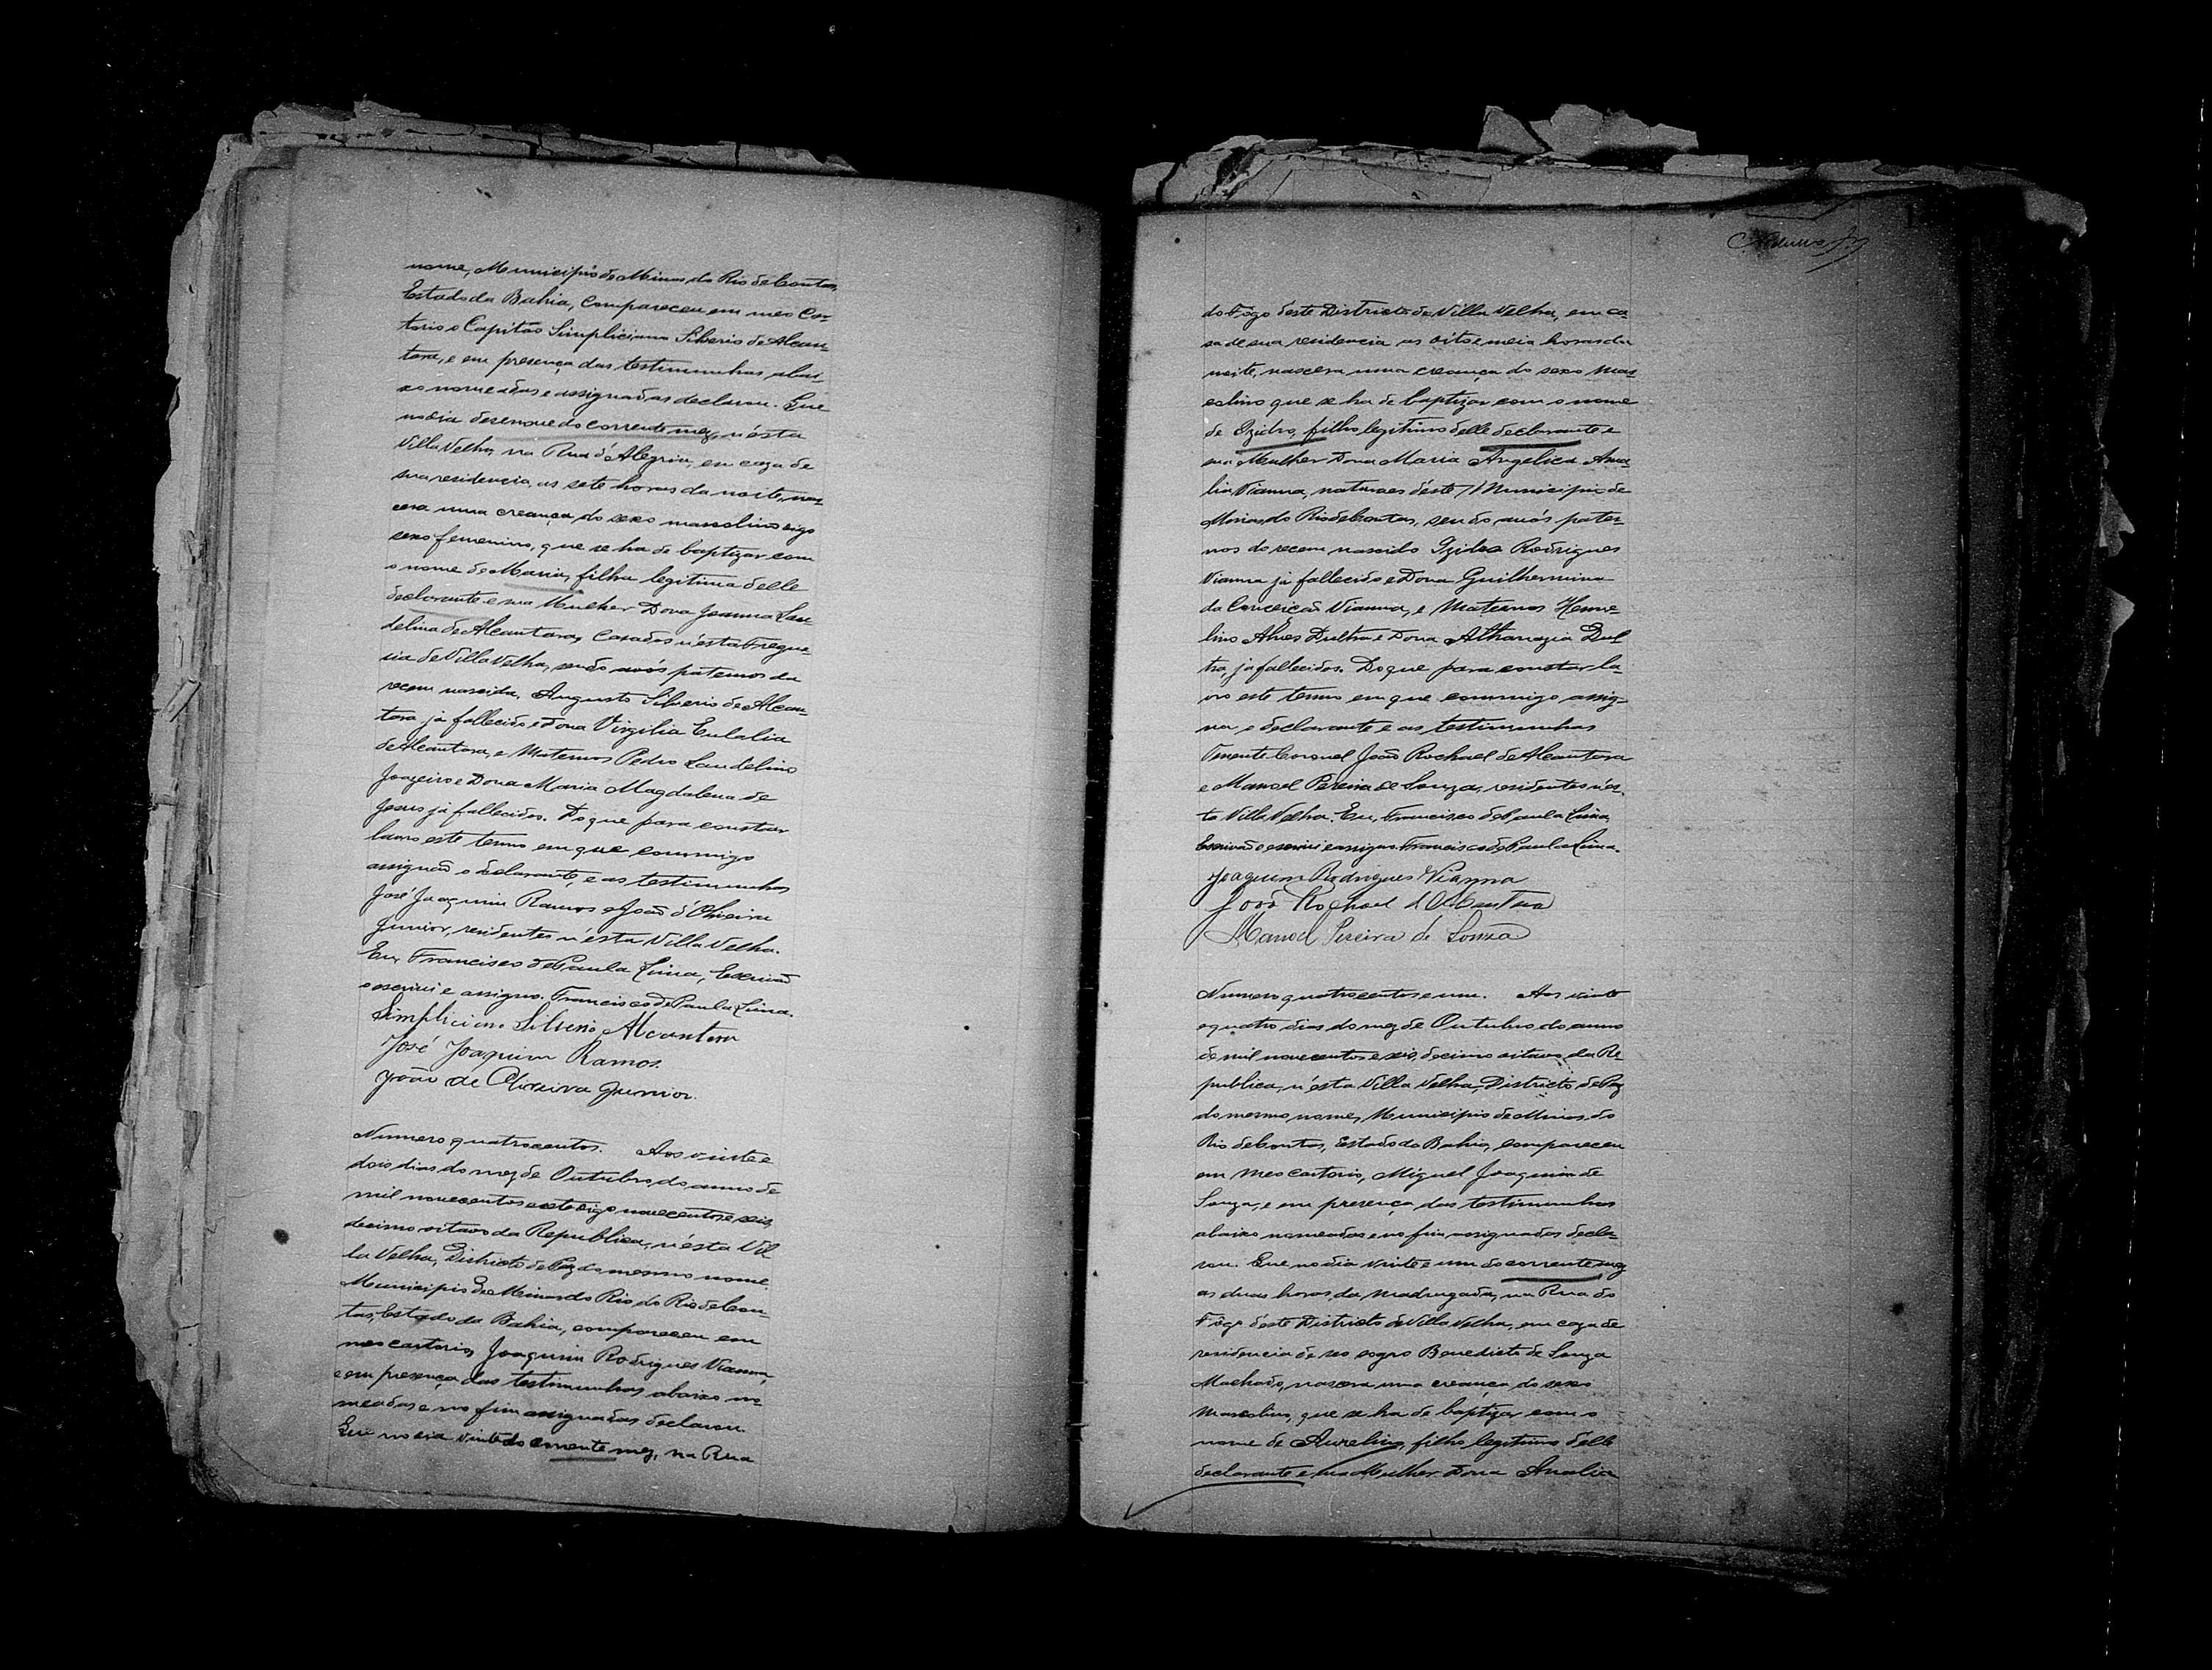 nome, Municipio de Minas do Rio de Contas,
Estado da Bahia, compareceu em meo Car-
torio o Capitão Simpliciano Silverio de Alcan-
tara, e em presença das testimunhas abai-
xo nomeadas e assignadas declarou. Que
no dia desenove do corrente mez, n'ésta
Villa Velha, na Rua d'Alegria, em caza de
sua residencia, as sete horas da noite, nas-
cera uma creança do sexo masculino digo
sexo femenino, que se ha de baptizar com
o nome de Maria, filha legitima delle
declarante e sua Mulher Dona Joanna Lau-
delina de Alcantara, casados n'ésta Fregue-
sia de Villa Velha, sendo avós paternos da
recem nascida, Augusto Silverio de Alcan-
tara já fallecido e Dona Virgilia Eulalia
de Alcantara, e Maternos Pedro Laudelino
Joazeiro e Dona Maria Magdalena de
Jesus já fallecidos. Do que para constar
lavro este termo em que commigo
assignão o declarante, e as testimunhas
José Joaquim Ramos e João d'Oliveira
Junior, residentes n'ésta Villa Velha.
Eu, Francisco de Paula Lima, Escrivão
o escrivi e assigno. Francisco de Paula Lima.
Simpliciano Silverio Alcantara
José Joaquim Ramos.
João de Oliveira Junior.
Numero quatrocentos. Aos vinte e
dois dias do mez de Outubro, do anno de
mil novecentos e digo novecentos e seis,
decimo oitavo da Republica, n'ésta Vil
la Velha, Districto de Paz do mesmo nome
Municipio de Minas do Rio do Rio de Con-
tas, Estado da Bahia, compareceu em
meo cartorio, Joaquim Rodrigues Vianna,
e em presença das testimunhas abaixo no-
meadas e no fim assignadas declarou.
Que no dia vinte do corrente mez, na Rua
do Fogo déste Districto de Villa Velha, em ca-
sa de sua residencia as oito e meia horas da
noite, nascera uma creança do sexo mas-
culino que se ha de baptizar com o nome
de Izidro, filho legitimo delle declarante e
sua Mulher Dona Maria Angelica Ama-
lia Vianna, naturaes déste Municipio de
Minas do Rio de Contas, sendo avós pater-
nos do recem nascido Izidro Rodrigues
Vianna já fallecido e Dona Guilhermina
da Conceição Vianna, e Maternos Herme-
lino Alves Dultra e Dona Athanazia Dul
tra, já fallecidos. Do que para constar la-
vro este termo em que commigo assig-
na o declarante e as testimunhas
Tenente Coronel João Rochael de Alcantara
e Manoel Pereira de Souza, residentes n'és-
ta Villa Velha. Eu, Francisco de Paula Lima,
Escrivão o escrivi e assigno. Francisco de Paula Lima.
Joaquim Rodrigues Vianna
João Rochael d'Alcantara
Manoel Pereira de Souza
Numero quatrocentos e um. Aos vinte
e quatro dias do mez de Outubro do anno
de mil novecentos e seis, decimo oitavo da Re-
publica, n'ésta Villa Velha, Districto de Paz
do mesmo nome, Municipio de Minas do
Rio de Contas, Estado da Bahia, compareceu
em meo cartorio, Miguel Joaquim de
Souza, e em presença das testimunhas
abaixo nomeadas e no fim assignadas decla-
rou. Que no dia vinte e um do corrente mez
as duas horas da madrugada, na Rua do
Fôgo déste Districto de Villa Velha, em caza de
residencia de seo sogro Benedicto de Souza
Machado, nascera uma creança do sexo
masculino, que se ha de baptizar com o
nome de Aurelino, filho legitimo délle
declarante e sua Mulher Dona Analia